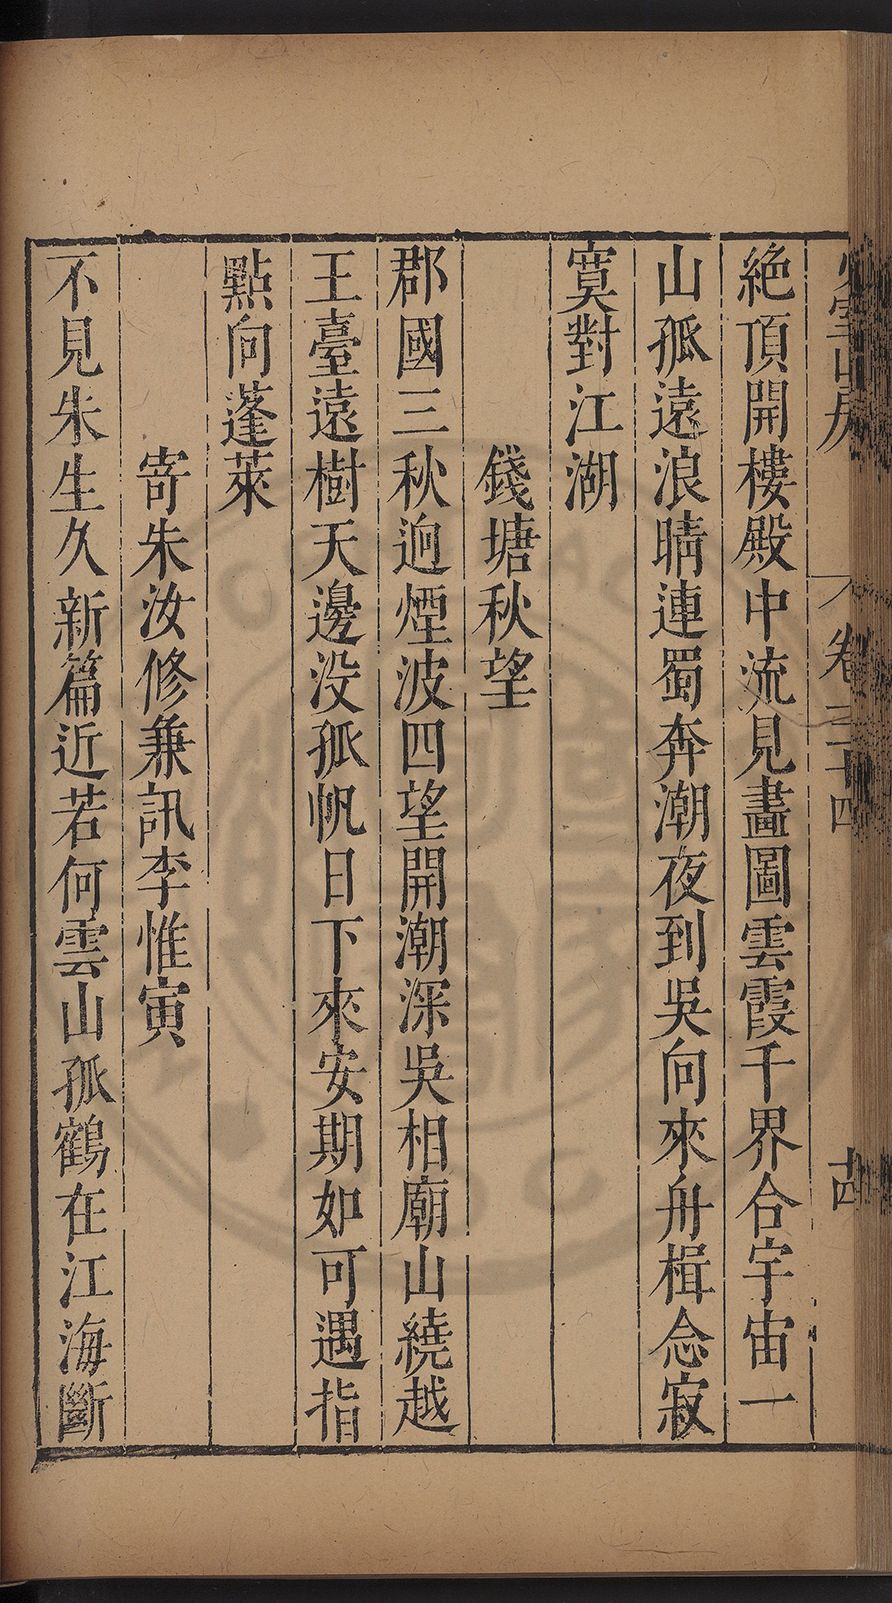 少室山房 卷二十四 十四
絶頂開樓殿中流見畫圖雲霞千界合宇宙一
山孤遠浪晴連蜀奔潮夜到吳向來舟楫念寂
寞對江湖
錢塘秋望
郡國三秋逈煙波四望開潮深吳相廟山繞越
王臺遠樹天邊没孤帆日下來安期如可遇指
點向蓬萊
寄朱汝修兼訊李惟寅
不見朱生久新篇近若何雲山孤鶴在江海斷